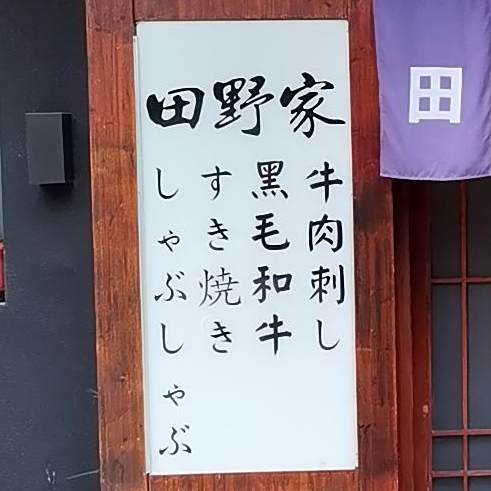 田野家
牛肉刺し
黒毛和牛
すき焼き
しゃぶしゃぶ
田